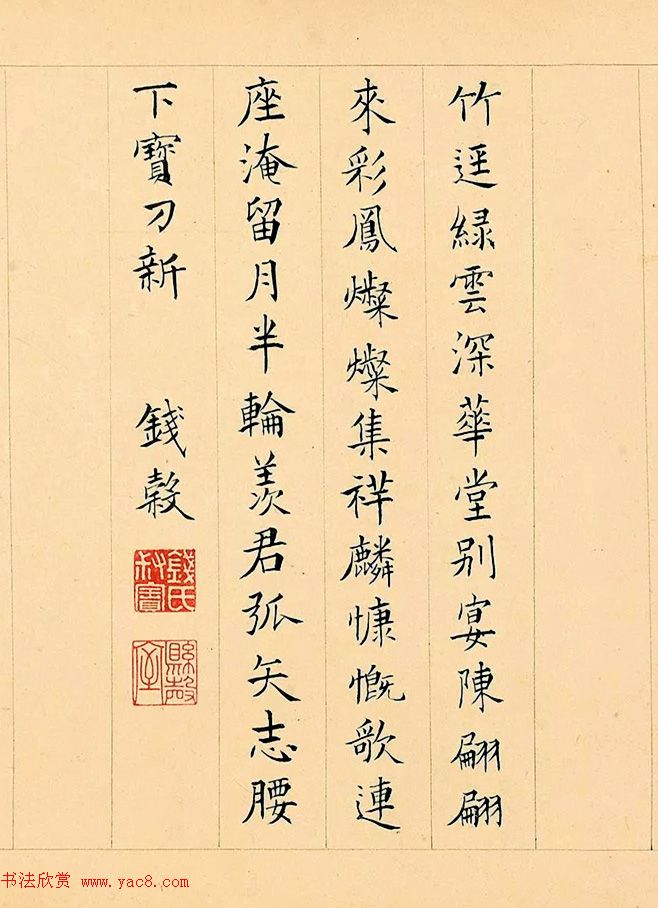 竹逕緑雲深華堂别宴陳翩翩
來彩鳳燦燦集祥麟慷慨歌連
座淹留月半輪羨君弧矢志腰
下寶刀新 錢穀
錢氏叔寶
书法欣赏 www.yac8.com